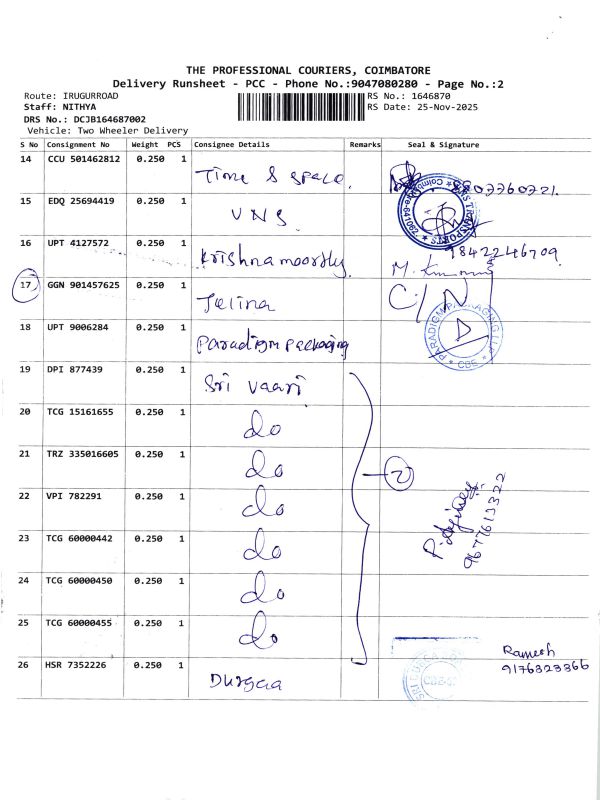 THE PROFESSIONAL COURIERS, COIMBATORE
Delivery Runsheet - PCC - Phone No.:9047080280 - Page No.:2
Route: IRUGURROAD RS No.: 1646870
Staff: NITHYA RS Date: 25-Nov-2025
DRS No.: DCJB164687002
Vehicle: Two Wheeler Delivery
S No Consignment No Weight PCS Consignee Details Remarks Seal & Signature
14 CCU 501462812 0.250 1 Time & space.
15 EDQ 25694419 0.250 1 VNS
16 UPT 4127572 0.250 1 Krishnamoorthy. 9842246709
17 GGN 901457625 0.250 1 Jelina
18 UPT 9006284 0.250 1 Paradigm packaging PARADIGM PACKAGING LLP CBE
19 DPI 877439 0.250 1 Sri Vaari
20 TCG 15161655 0.250 1 do
21 TRZ 335016605 0.250 1 do
22 VPI 782291 0.250 1 do
23 TCG 60000442 0.250 1 do
24 TCG 60000450 0.250 1 do
25 TCG 60000455 0.250 1 do
26 HSR 7352226 0.250 1 Durgaa Ramesh
9176323366